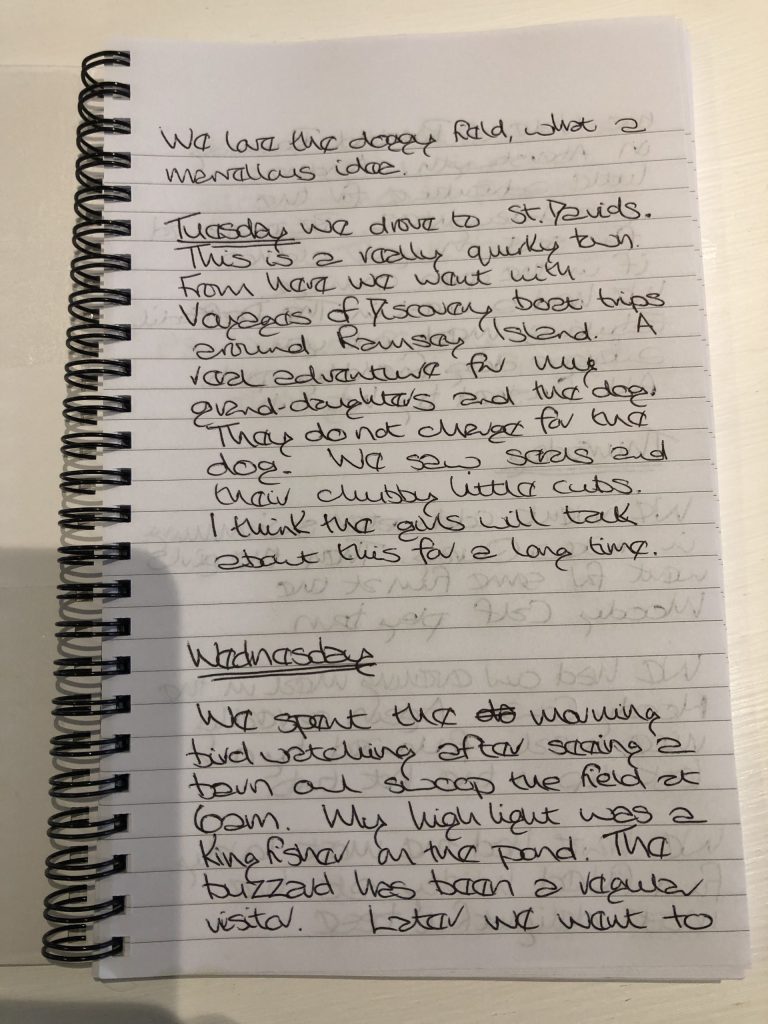 We love the doggy field, what a
marvellous idea.
Tuesday we drove to St. Davids.
This is a really quirky town.
From here we went with
Voyages of Discovery boat trips
around Ramsay Island. A
real adventure for my
grand-daughters and the dog.
They do not charge for the
dog. We saw seals and
their chubby little cubs.
I think the girls will talk
about this for a long time.
Wednesday
We spent the morning
birdwatching after seeing a
barn owl swoop the field at
6am. My highlight was a
Kingfisher on the pond. The
buzzard has been a regular
visitor. Later we went to